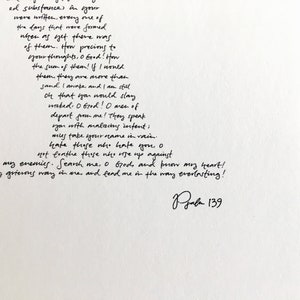 ed substance; in your
were written, every one of
the days that were formed
when as yet there was
of them. How precious to
your thoughts, O God! How
the sum of them! If I would
them, they are more than
sand. I awake, and I am still
Oh that you would slay
wicked, O God! O men of
depart from me! They speak
you with malicious intent;
mies take your name in vain.
hate those who hate you, O
not loathe those who rise up against
my enemies. Search me, O God, and know my heart!
grievous way in me, and lead me in the way everlasting!
Psalm 139